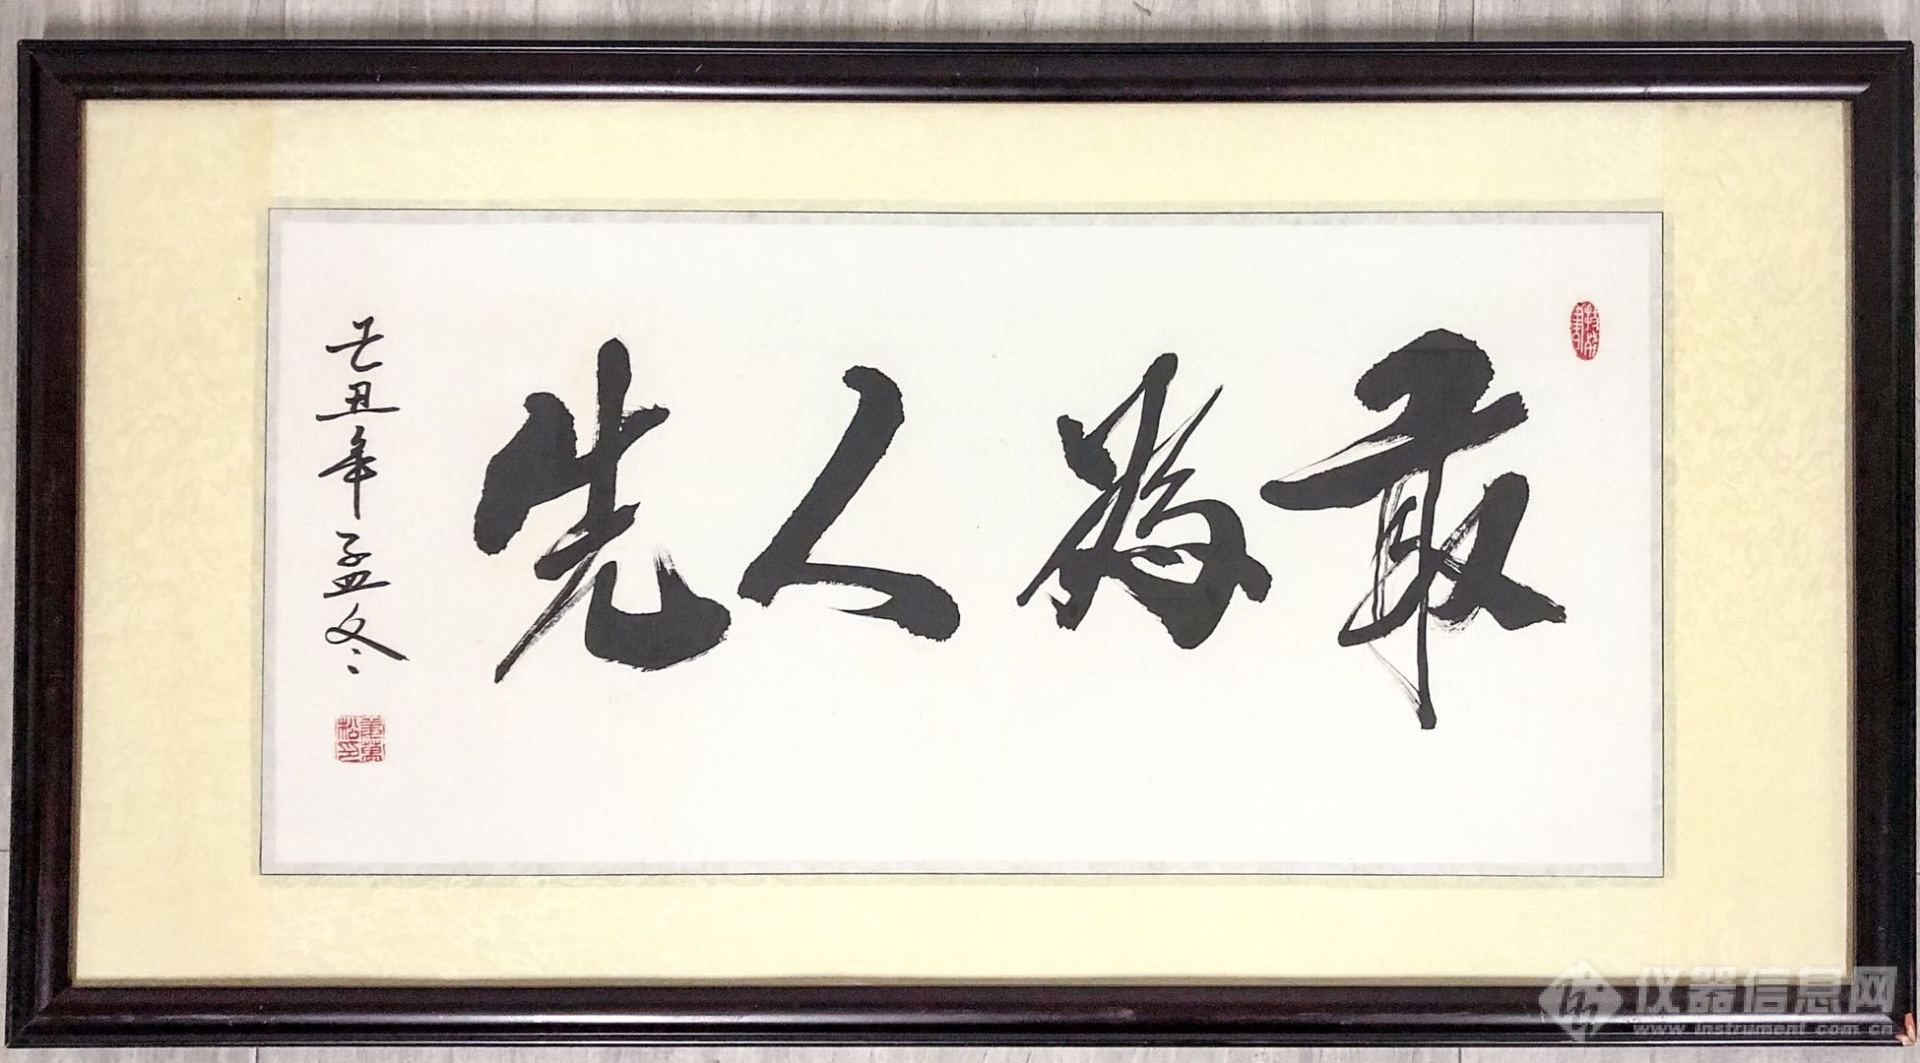 敢為人先
己丑年孟冬
仪器信息网
www.instrument.com.cn